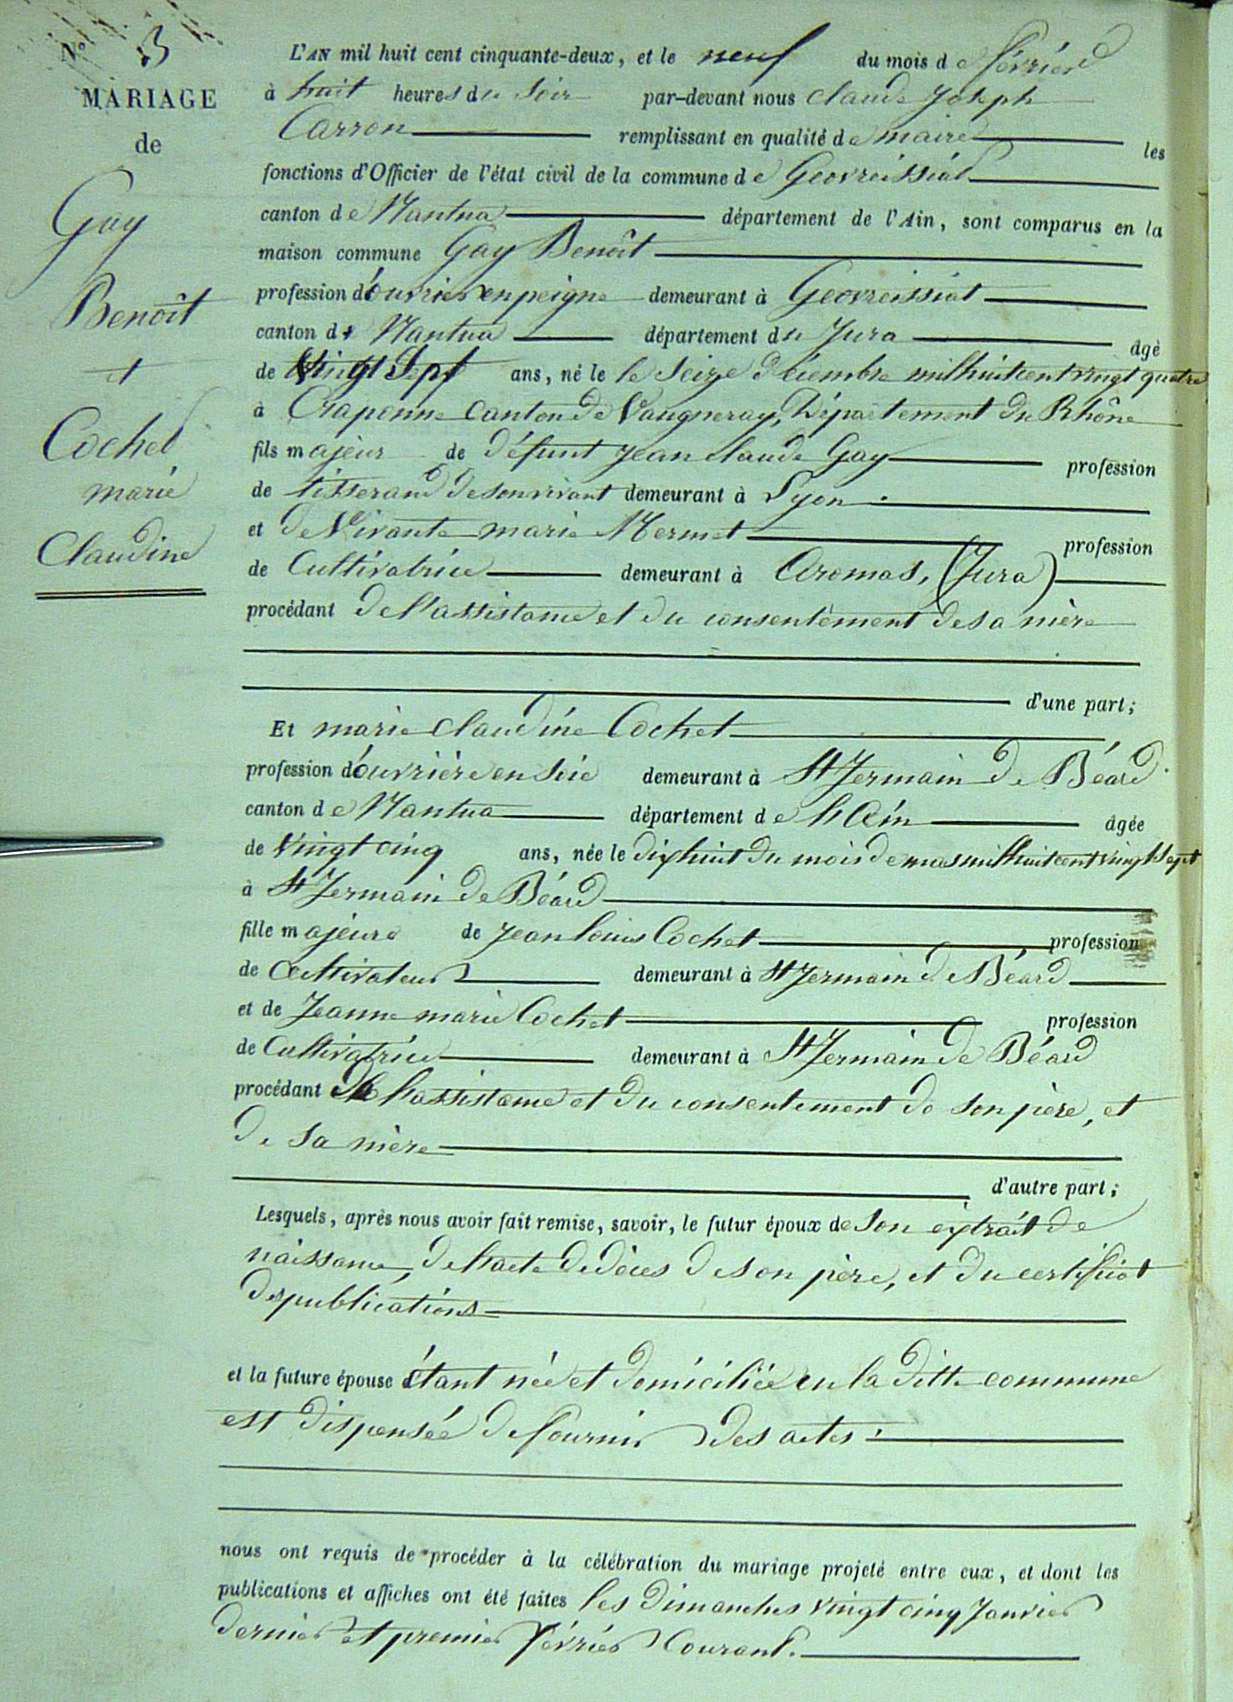 N° 3
MARIAGE
de
Gay
Benoît
et
Cochet
marie
Claudine
L'AN mil huit cent cinquante-deux, et le neuf du mois de février
à huit heures du soir par-devant nous Claude Joseph
Carron remplissant en qualité de maire les
fonctions d'Officier de l'état civil de la commune de Geovreissiat
canton de Nantua département de l'Ain, sont comparus en la
maison commune Gay Benoît
profession d'ouvrier en peigne demeurant à Geovreissiat
canton de Nantua département du Jura âgé
de Vingt Sept ans, né le le seize décembre mil huit cent vingt quatre
à Craponne canton de Vaugneray, Département du Rhône
fils majeur de défunt Jean Claude Gay profession
de tisserand de son vivant demeurant à Lyon.
et de Vivante marie Mermet profession
de Cultivatrice demeurant à Aromas, (Jura)
procédant de l'assistance et du consentement de sa mère
d'une part;
Et marie Claudine Cochet
profession d'ouvrière en soie demeurant à St Germain de Béard
canton de Nantua département de l'Ain âgée
de Vingt cinq ans, née le dix huit du mois de mas mil huit cent vingt sept
à St Germain de Béard
fille majeure de Jean Louis Cochet profession
de Cultivateur demeurant à St Germain de Béard
et de Jeanne marie Cochet profession
de Cultivatrice demeurant à St Germain de Béard
procédant de l'assistance et du consentement de son père, et
de sa mère
d'autre part;
Lesquels, après nous avoir fait remise, savoir, le futur époux de son extrait de
naissance, de l'acte de décès de son père, et du certificat
des publications
et la future épouse étant née et domiciliée en la ditte commune
est dispensée de fournir des actes.
nous ont requis de procéder à la célébration du mariage projeté entre eux, et dont les
publications et affiches ont été faites les dimanches vingt cinq Janvier
dernier et premier février Courant.